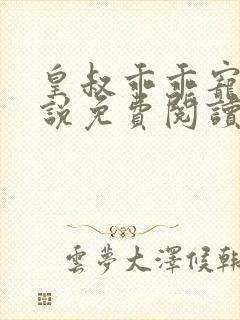 皇叔乖乖寵
說免費閱讀
雲夢大澤候輯